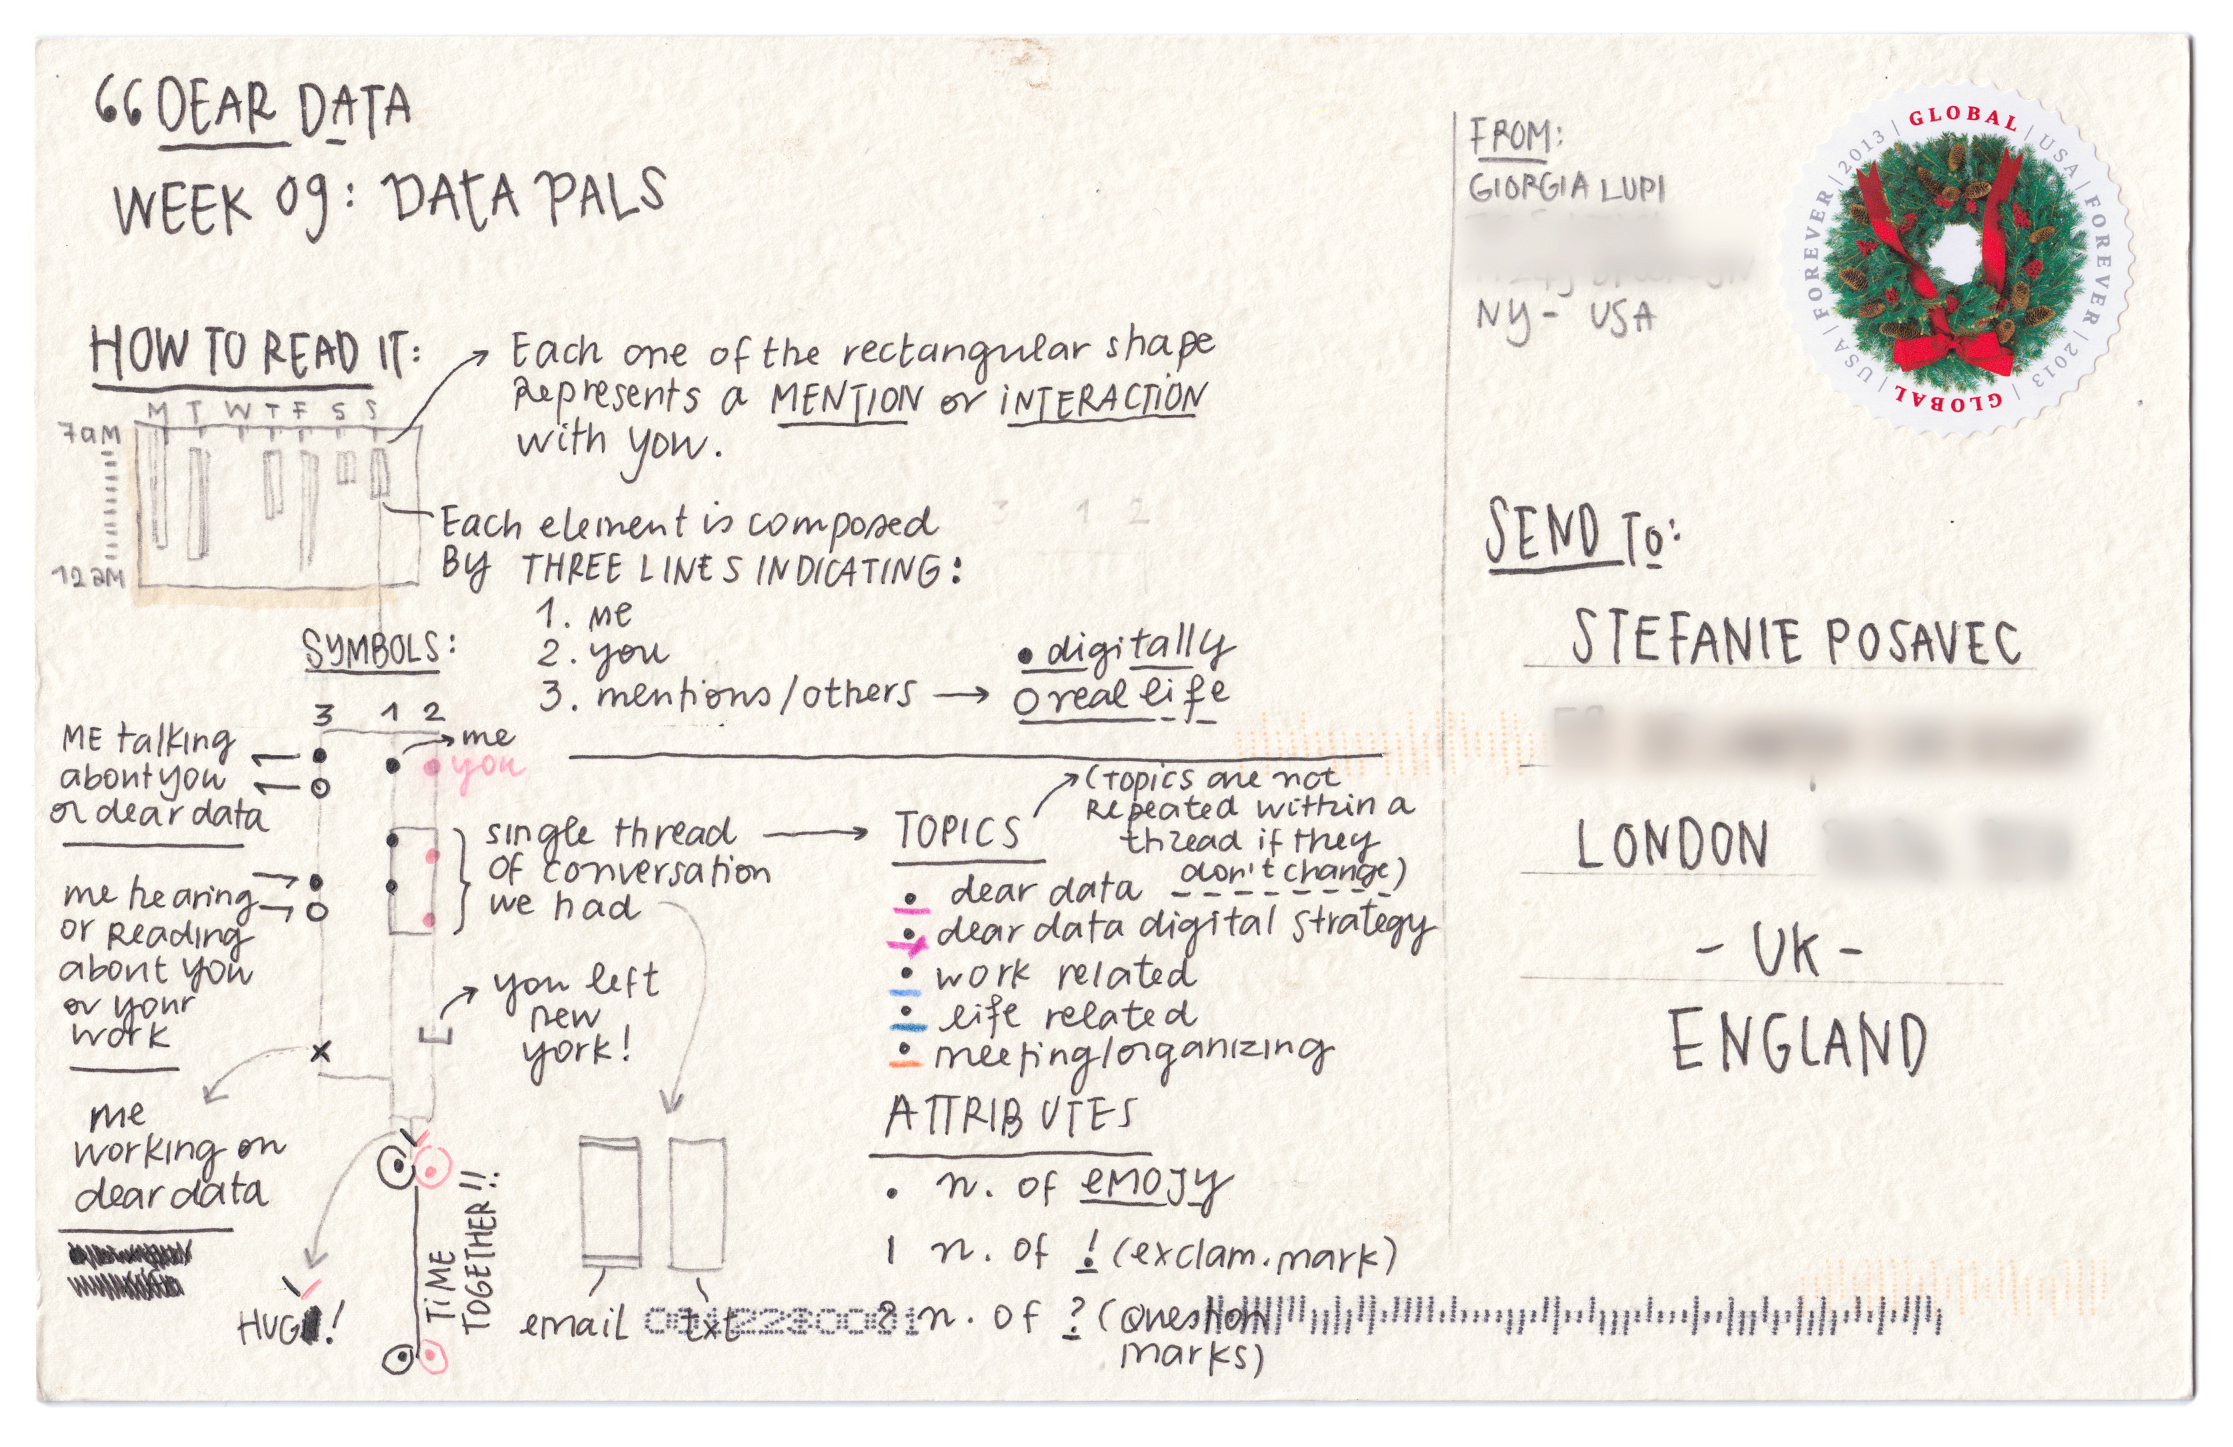 66 DEAR DATA
WEEK 09: DATA PALS
HOW TO READ IT:
M T W T F S S
7am
12am
Each one of the rectangular shape
Represents a MENTION or iNTERACTION
with you.
Each element is composed
By THREE LINES INDICATING:
1. me
2. you
3. mentions/others → digitally
real life
3 1 2
SYMBOLS:
3 1 2
me
you
ME talking
about you
or dear data
me hearing
or Reading
about you
or your
work
me
working on
dear data
HUG!
single thread
of conversation
we had
you left
new
york!
TIME
TOGETHER!!
email
txt
TOPICS
(Topics are not
Repeated within a
thread if they
don't change)
dear data
dear data digital strategy
work related
life related
meeting/organizing
ATTRIBUTES
. n. of emojy
| n. of ! (exclam. mark)
? n. of ? (question
marks)
FROM:
GIORGIA LUPI
NY - USA
GLOBAL | USA | FOREVER | 2013 | GLOBAL | USA | FOREVER | 2013 |
SEND To:
STEFANIE POSAVEC
LONDON
- UK -
ENGLAND